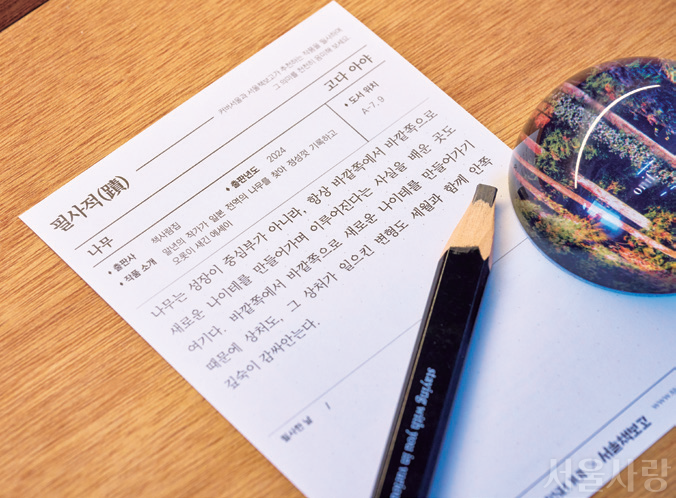 커버서울과 서울책보고가 추천하는 작품을 필사하며
그 의미를 천천히 음미해 보세요.
필사적(蹟)
나무
고다 아야
• 출판사
책사람집
• 출판년도
2024
• 도서 위치
A-7, 9
• 작품 소개
일년의 작가가 일본 전역의 나무를 찾아 정성껏 기록하고
오롯이 새긴 에세이
나무는 성장이 중심부가 아니라, 항상 바깥쪽에서 바깥쪽으로
새로운 나이테를 만들어가며 이루어진다는 사실을 배운 곳도
여기다. 바깥쪽에서 바깥쪽으로 새로운 나이테를 만들어가기
때문에 상처도, 그 상처가 일으킨 변형도 세월과 함께 안쪽
깊숙이 감싸안는다.
필사한 날
/
staying with you in
서울책보고
www.s
서울사랑